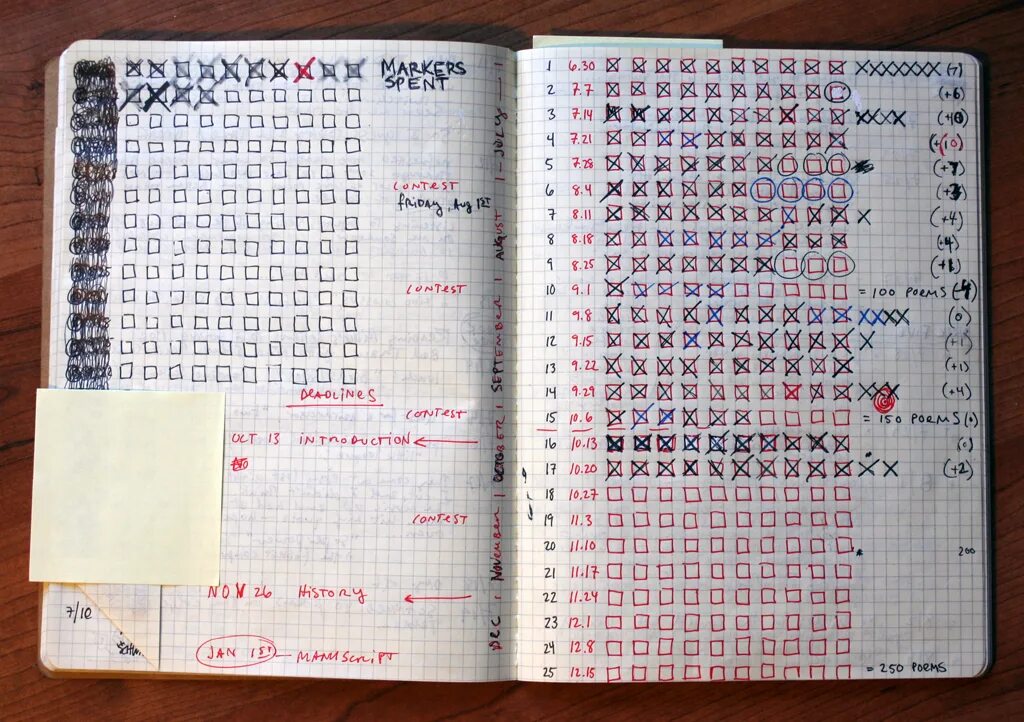 MARKERS
SPENT
CONTEST
FRIDAY, Aug 1ST
CONTEST
DEADLINES
CONTEST
OCT 13 INTRODUCTION
CONTEST
NOV 26 HISTORY
7/10
JAN 1ST — MANUSCRIPT
DEC | NOVEMBER | OCTOBER | SEPTEMBER | AUGUST | JULY
1 6.30 (7)
2 7.7 (+6
3 7.14
4 7.21
5 7.28
6 8.4
7 8.11 (+4)
8 8.18
9 8.25
10 9.1 = 100 POEMS
11 9.8 (0)
12 9.15 (+1)
13 9.22 (+1)
14 9.29 (+4)
15 10.6 = 150 POEMS (0)
16 10.13 (0)
17 10.20 (+2)
18 10.27
19 11.3
20 11.10 200
21 11.17
22 11.24
23 12.1
24 12.8
25 12.15 = 250 POEMS